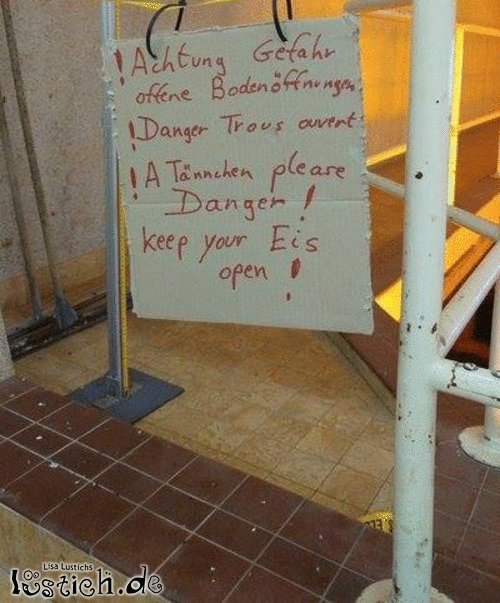 ! Achtung Gefahr
offene Bodenöffnungen
! Danger Trous ouvert
! A Tännchen please
Danger !
keep your Eis
open !
Lisa Lustichs
lustich.de